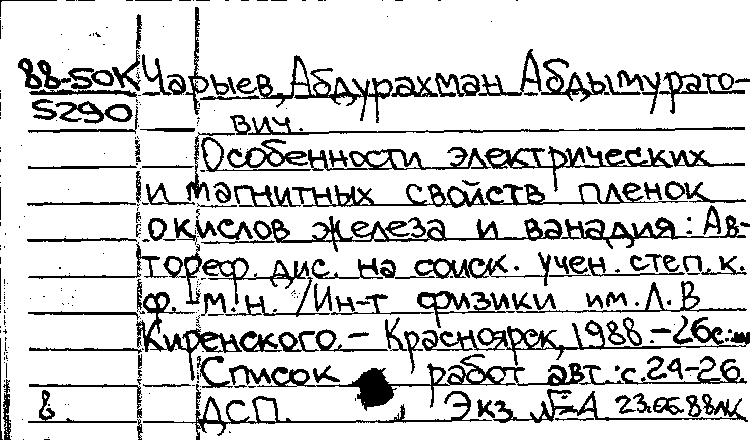 88-50К Чарыев, Абдурахман Абдымурато-
5290 вич.
Особенности электрических
и магнитных свойств пленок
окислов железа и ванадия: Ав-
тореф. дис. на соиск. учен. степ. к.
ф.-м.н. /Ин-т физики им. Л.В
Киренского.- Красноярск, 1988.-26с.
Список работ авт.: с.24-26.
ДСП. Экз №А 23.06.88